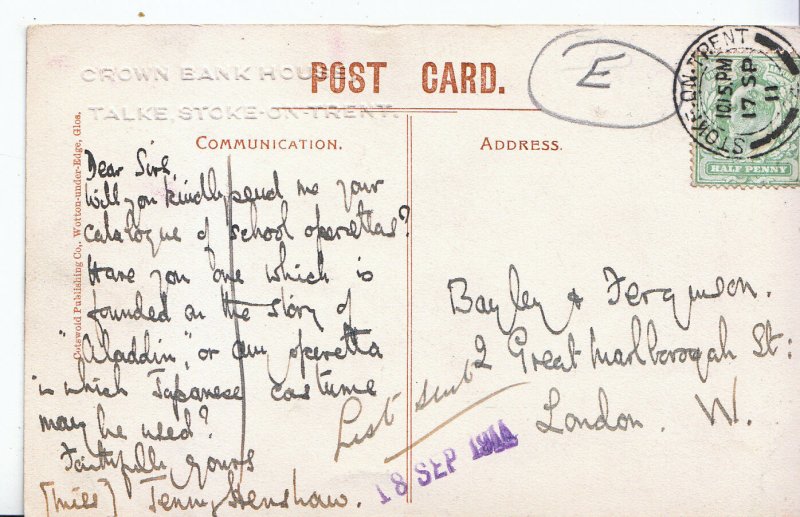 CROWN BANK HOUSE,
TALKE, STOKE-ON-TRENT.
POST CARD.
E
STOKE-ON-TRENT
10.15 PM
17 SP
11
HALF PENNY
COMMUNICATION.
ADDRESS.
Cotswold Publishing Co., Wotton-under-Edge, Glos.
Dear Sirs,
Will you kindly send me your
catalogue of school operettas?
Have you one which is
founded on the story of
"Aladdin", or any operetta
in which Japanese costume
may be used?
Faithfully yours
[Miss] Jenny Henshaw.
Bayley & Ferguson.
2 Great Marlborough St:
London. W.
List sent
18 SEP